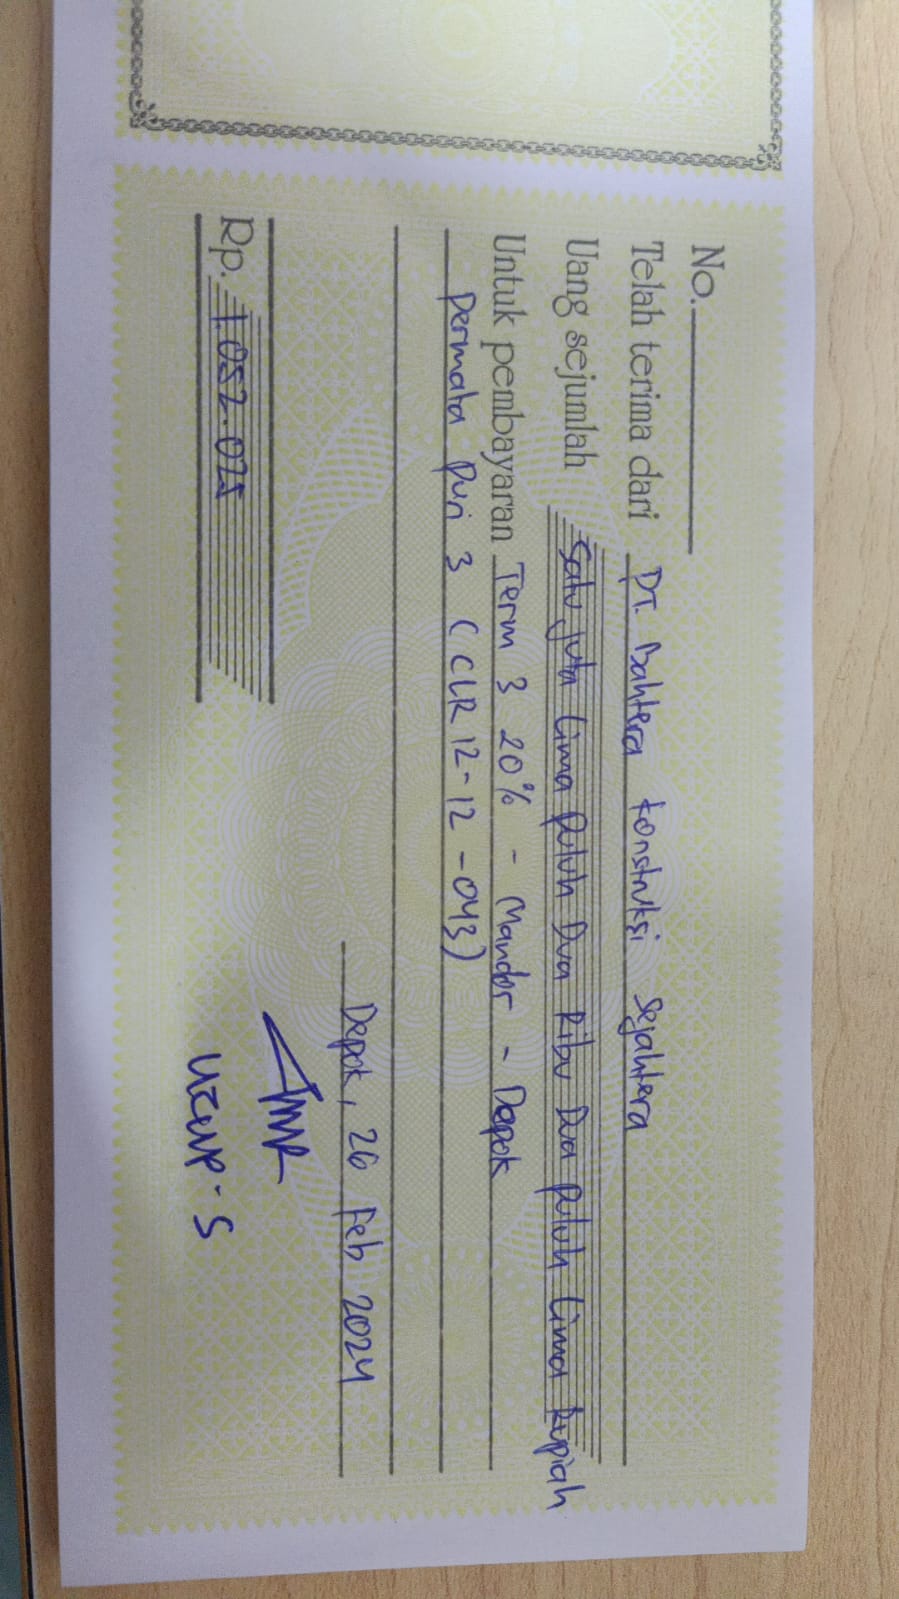 No.
Telah terima dari PT. Bahtera Konstruksi Sejahtera
Uang sejumlah Satu juta Lima puluh Dua Ribu Dua puluh Lima Rupiah
Untuk pembayaran Term 3 20% - Mandor - Depok
Permata Puri 3 (CLR 12-12-043)
Depok, 26 Feb 2024
Rp. 1.052.025